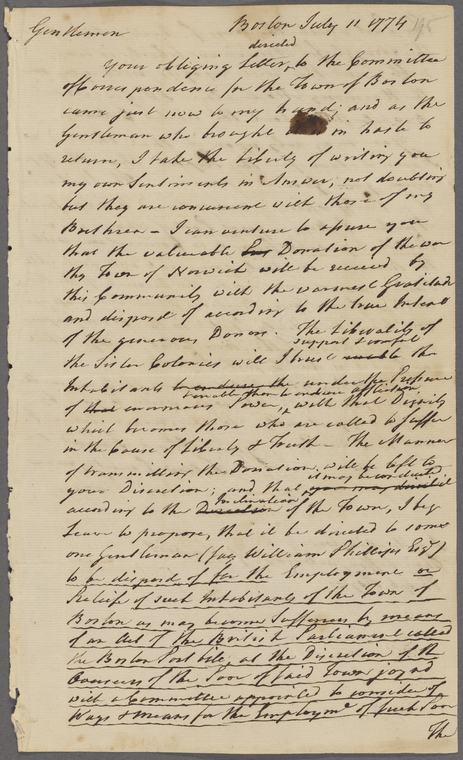 Gentlemen Boston July 11 1774 195
directed
Your obliging Letter, to the Committee
of Correspondence for the Town of Boston
came just now to my hand; and as the
Gentleman who brought in haste to
return, I take the Liberty of writing you
my own Sentiments in Answer, not doubting
but they are concurrent with those of my
Brethren - I can venture to assure you
that the valuable Donation of the wor
thy Town of Norwich will be receivd by
this Community with the warmest Gratitude
and disposd of according to the true Intent
of the generous Donors. The Liberality of
support & comfort
the Sister Colonies will I trust enable the
Inhabitants to endure the under the Pressure
enable them to endure affliction
of that enormous Power, with that Dignity
which becomes those who are called to suffer
in the Cause of Liberty & Truth - The Manner
of transmitting the Donation, will be left to
it may be conducted
your Discretion; and that you may
Inclination
according to the Direction of the Town, I beg
Leave to propose, that it be directed to some
one Gentleman (say William Phillips Esqr)
to be disposd of for the Employment or
Relief of such Inhabitants of the Town of
Boston as may become Sufferers by means
of an Act of the British Parliament called
the Boston Port bill, at the Discretion of the
Overseers of the Poor of said Town joynd
with a Committee appointed to consider of
Ways & Means for the Employmt of such Poor
The